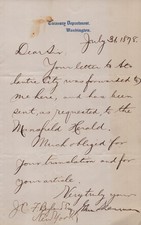 Treasury Department,
Washington.
July 31, 1878.
Dear Sir
Your letter to At-
lantic City was forwarded to
me here, and has been
sent, as requested, to the
Mansfield Herald.
Much obliged for
your translation and for
your article.
Very truly your
John Sherman
New York